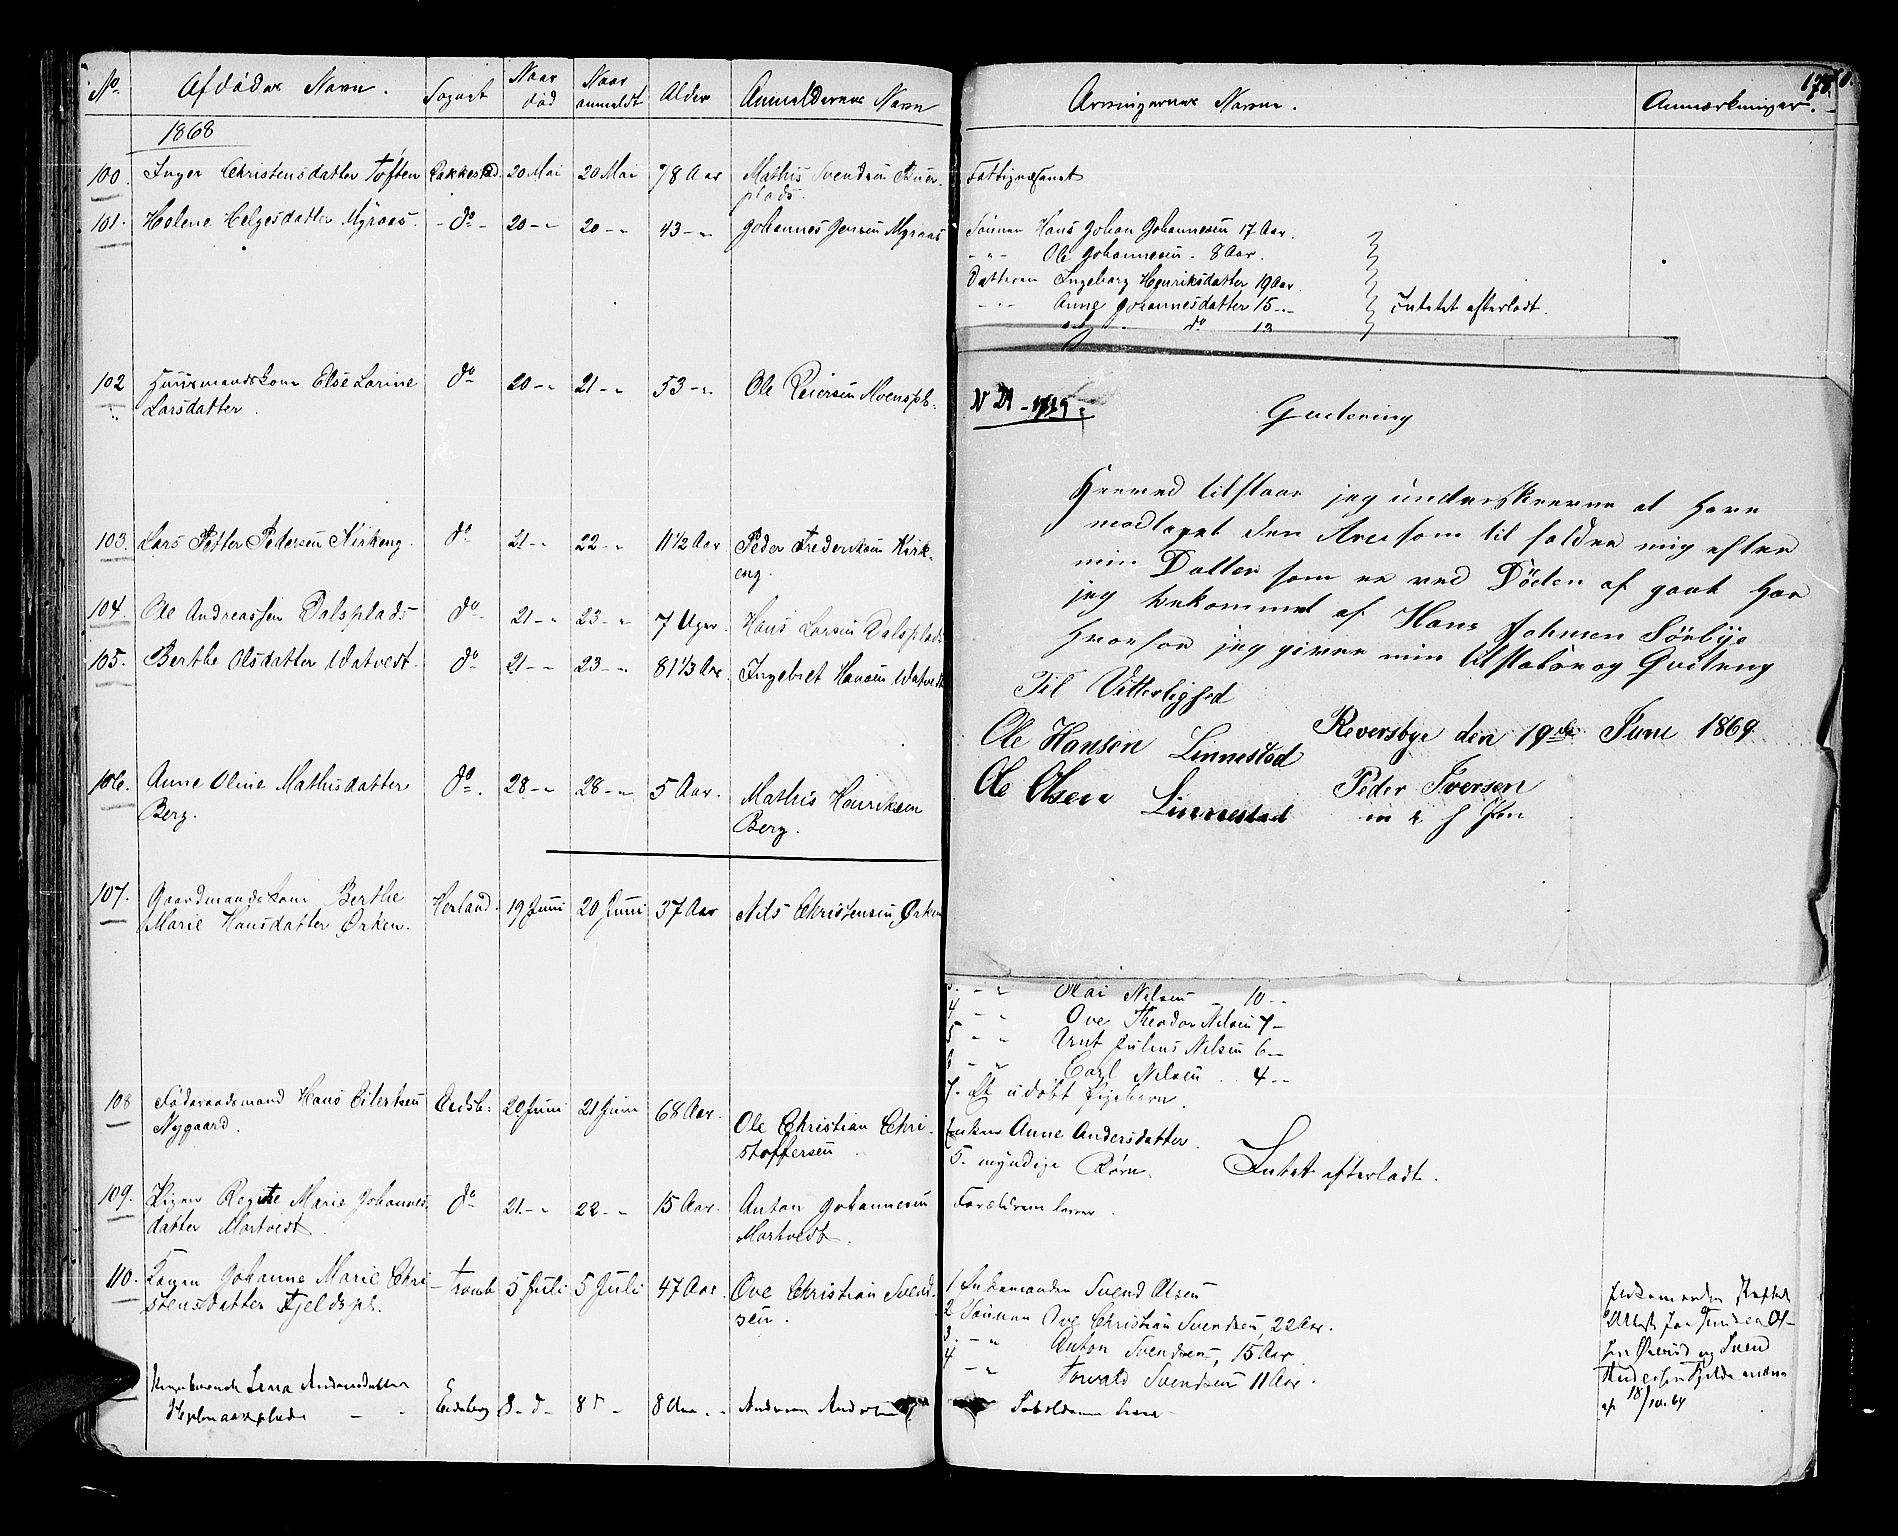 No. Afdødes Navn. Sognet Naar død Naar anmeldt Alder Anmelderens Navn
1868
100. Inger Christensdatter Tøften Rakkestad 20 Mai 20 Mai 78 Aar Mathis Svendsen
plads.
101. Helene Helgesdatter Myraas - do - 20 - " 20 - " 43 - " Johannes Jensen Myraas
102 Huusmandskone Else Larine do 20 - " 21 - " 53 - " Ole Reiersen Moenspl.
Larsdatter.
103. Lars Petter Pedersen Kirkeng. do 21 - " 22 - " 11 1/2 Aar Peder Frederiksen Kirk-
eng.
104. Ole Andreassen Dalsplads do 21 - " 23 - " 7 Uger. Hans Larsen Dalsplads
105. Berthe Olsdatter Watvedt. do 21 - " 23 - " 81 1/3 Aar Ingebret Hansen Watvedt
106. Anne Oline Mathisdatter do. 28 - " 28 - " 5 Aar. Mathis Henriksen
Berg. Berg.
107. Gaardmandskone Berthe Herland. 19 Juni 20 Juni 37 Aar Nils Christensen Ørken
Marie Hansdatter Ørken.
108 Føderaadsmand Hans Eilertsen Eidsb. 20 Juni 21 Juni 68 Aar. Ole Christian Chri-
Nygaard. stoffersen
109. Pigen Regine Marie Johannes- do 21 - " 22 - " 15 Aar. Anton Johannesen
datter Martvedt. Martvedt.
110. Konen Johanne Marie Chri- Tromb 5 Juli 5 Juli 47 Aar. Ove Christian Svend-
stensdatter Fjeldspl. sen.
Lena Andersdatter Eidsberg 8 - d - 8 8 Aar
Arvingernes Navne. Anmærkninger.
Fattigvæsenet
Sønnen Hans Johan Johannesen 17 Aar.
- " - Ole Johannesen - 8 Aar.
Datteren Ingeborg Henriksdatter 19 Aar.
- " - Anne Johannesdatter 15 - " - Intetet efterladt.
do 12
Qvitering
Herved tilstaar jeg underskrevne at have
modtaget den Arv som til falder mig efter
min Datter som er ved Døden af gaat har
jeg bekommet af Hans Johnsen Sörbye
hvorfor jeg giver min tilstaaelse og Qvitering
Til Vitterlighed
Reversbye den 19de Juni 1869
Ole Hansen Linnestad
Peder Iversen
Ole Olsen Linnestad
m p Pen
- " Olai Nilsen 10 - -
4 - " Ove Theodor Nilsen 7 -
5 - " Arnt Julius Nilsen 6 - -
6 - " Carl Nilsen 4 - -
7. Et udøbt Pigebarn.
Enken Anne Andersdatter.
5. myndige Børn. Intet efterladt.
Forældrene lever.
1 Enkemanden Svend Olsen
2 Sønnen Ove Christian Svendsen, 22 Aar.
3. - " Anton Svendsen, 15 Aar.
4 - " Torvald Svendsen 11 Aar.
Enkemanden Skifte
og Svend
18/10.69